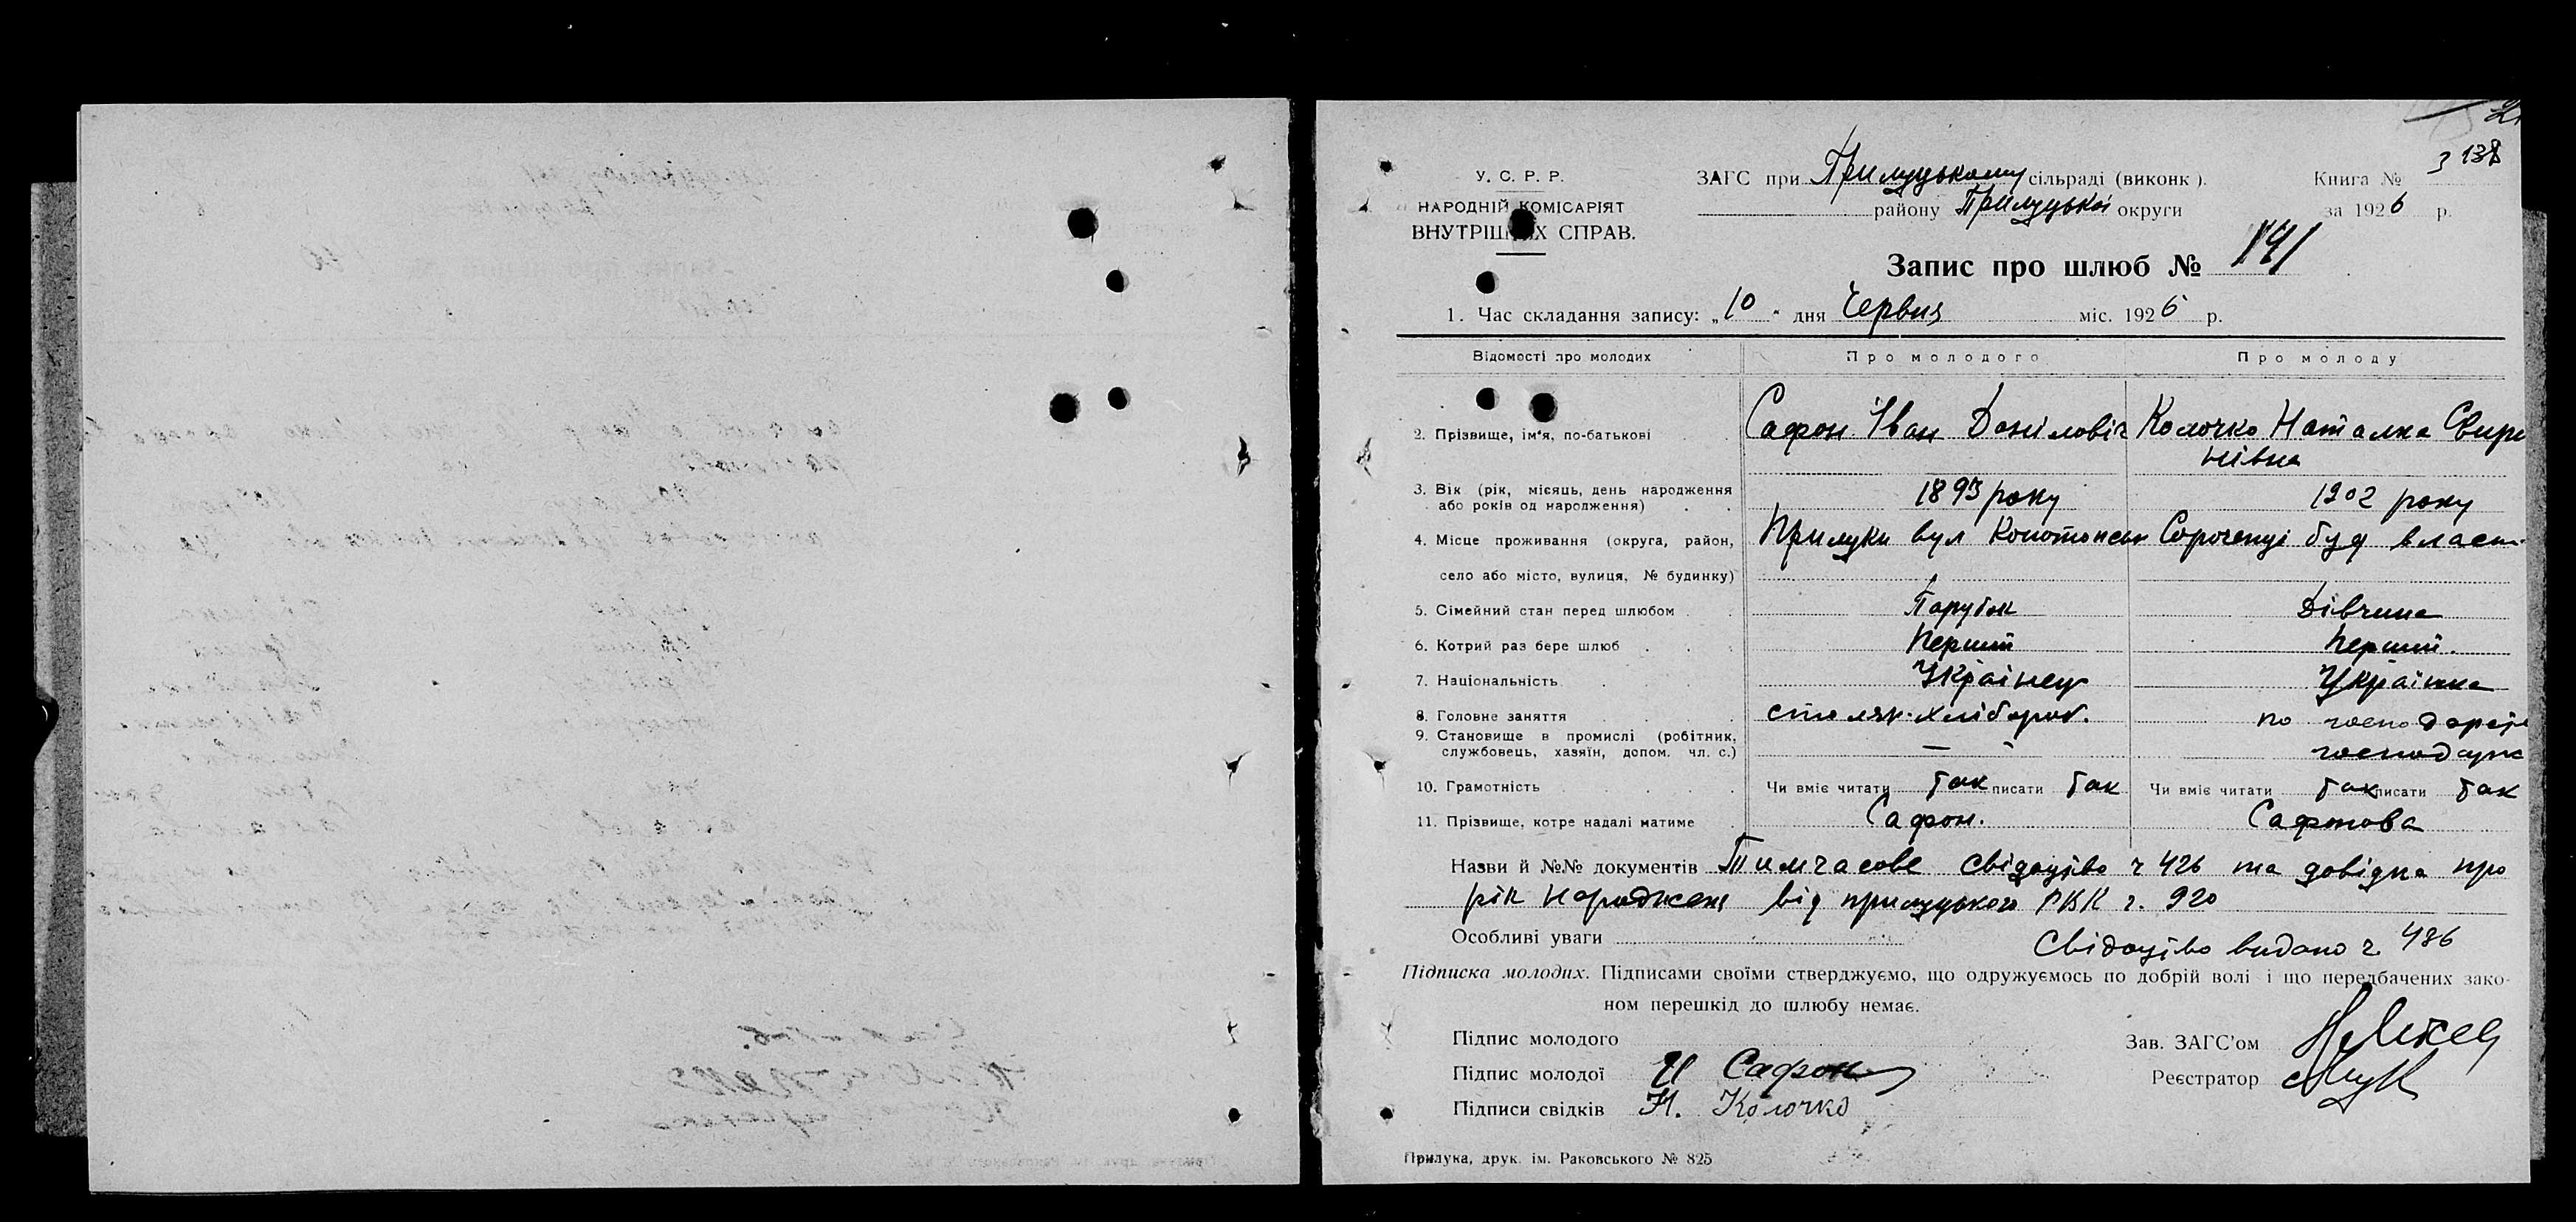 138
У. С. Р. Р.
ЗАГС при Прилуцькому сільраді (виконк).
Книга № 3
НАРОДНІЙ КОМІСАРІЯТ
району Прилуцької округи
за 1926 р.
ВНУТРІШНІХ СПРАВ.
Запис про шлюб № 141
1. Час складання запису: „10" дня Червня міс. 1926 р.
Відомості про молодих Про молодого Про молоду
2. Прізвище, ім'я, по-батькові Сафрон Іван Данілович Колочко Наталка Свири
нівна
3. Вік (рік, місяць, день народження
або років од народження) 1893 року 1902 року
4. Місце проживання (округа, район, Прилуки вул Конотопськ Сорочинці буд власн.
село або місто, вулиця, № будинку)
5. Сімейний стан перед шлюбом Парубок Дівчина
6. Котрий раз бере шлюб Перший перший.
7. Національність Українец Українка
8. Головне заняття столяр. хлібороб. по господарст
9. Становище в промислі (робітник,
службовець, хазяїн, допом. чл. с.) — господарк
10. Грамотність Чи вміє читати так писати так Чи вміє читати так писати так
11. Прізвище, котре надалі матиме Сафрон. Сафонова
Назви й №№ документів Тимчасове свідоцтво ч 426 та довідка про
рік народження від прилуцького РВК ч. 920
Особливі уваги
Свідоцтво видано ч. 486
Підписка молодих. Підписами своїми стверджуємо, що одружуємось по добрій волі і що передбачених зако-
ном перешкід до шлюбу немає.
Підпис молодого
Зав. ЗАГС'ом
Підпис молодої И Сафрон
Реєстратор
Підписи свідків Н. Колочко
Прилука, друк. ім. Раковського № 825